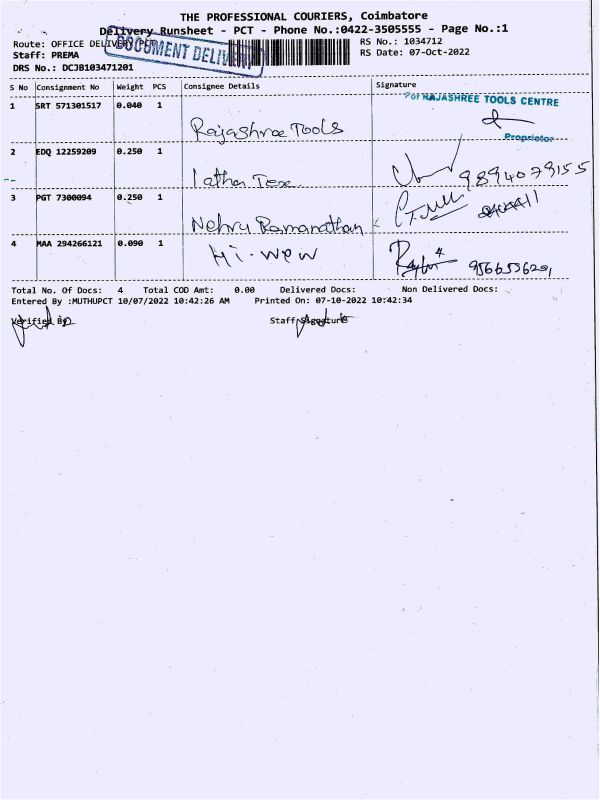 THE PROFESSIONAL COURIERS, Coimbatore
Delivery Runsheet - PCT - Phone No.:0422-3505555 - Page No.:1
Route: OFFICE DELIVERY
RS No.: 1034712
DOCUMENT DELIVERY
Staff: PREMA
RS Date: 07-Oct-2022
DRS No.: DCJB103471201
S No Consignment No Weight PCS Consignee Details Signature
For RAJASHREE TOOLS CENTRE
1 SRT 571301517 0.040 1
Rajashree Tools
Proprietor
2 EDQ 12259209 0.250 1
Latha Tex. 9894079155
3 PGT 7300094 0.250 1
Nehru Ramanathan
4 MAA 294266121 0.090 1
Hi-wew 9566536201
Total No. Of Docs: 4 Total COD Amt: 0.00 Delivered Docs: Non Delivered Docs:
Entered By :MUTHUPCT 10/07/2022 10:42:26 AM Printed On: 07-10-2022 10:42:34
Verified By Staff Signature